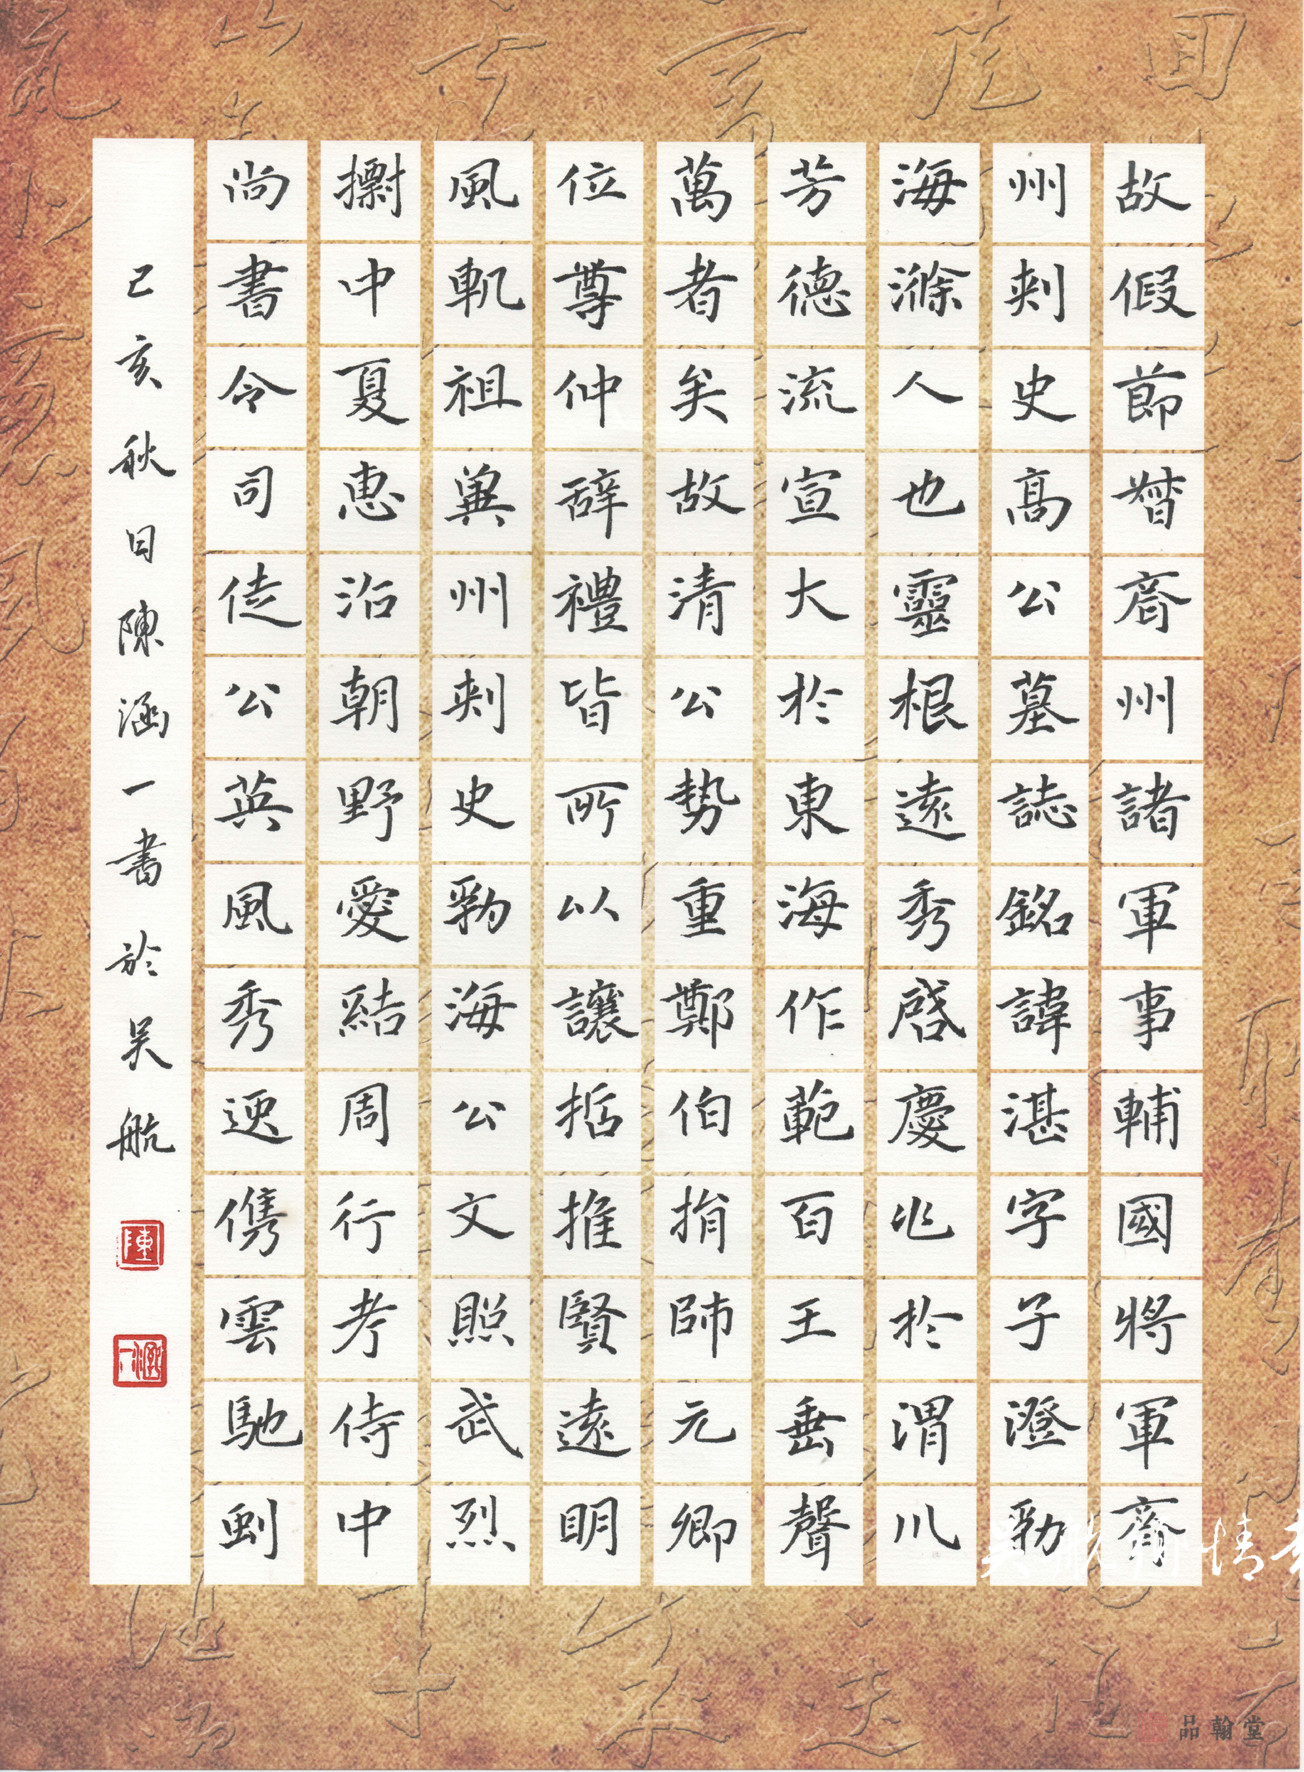 故假節督齊州諸軍事輔國將軍齊
州刺史高公墓誌銘諱湛字子澄勃
海滌人也靈根遠秀啓慶兆於渭川
芳德流宣大於東海作範百王垂聲
萬者矣故清公勢重鄭伯捐師元卿
位尊仲辤禮皆所以讓括推賢遠明
風軌祖冀州刺史勃海公文照武烈
中夏惠沿朝野愛結周行考侍中
尚書令司徒公英風秀逸儁雲馳
己亥秋日陳涵一書於吴航
陳
涵一
品翰堂